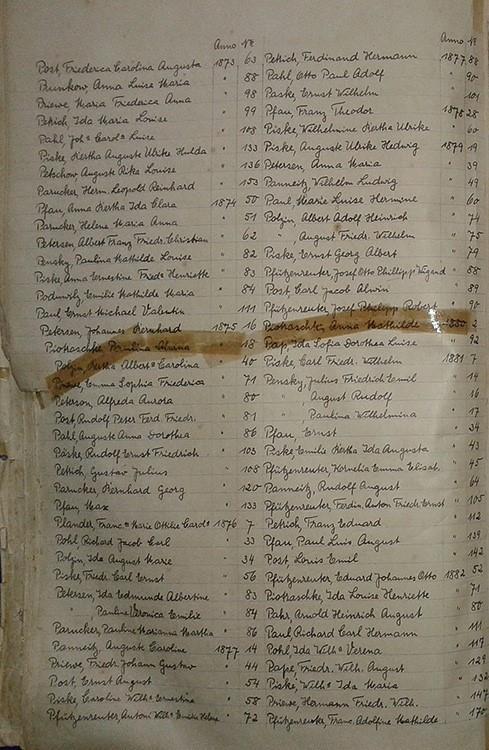 Anno №
Post, Friederica Carolina Augusta 1873 63
Prunkow, Anna Luise Maria " 88
Priewe, Maria Friederica Anna " 98
Petrich, Ida Maria Louise " 99
Pahl, Joh⁠ª Carolª Luise " 108
Piske, Bertha Auguste Ulrike Hulda " 133
Petschow, Auguste Rike Louise " 136
Parucker, Herm. Leopold Reinhard " 153
Pfau, Anna Bertha Ida Clara 1874 50
Parucker, Helene Maria Anna " 51
Petersen, Albert Franz Friedr. Christian " 62
Pensky, Paulina Mathilde Louise " 82
Piske, Anna Ernestine Friedª Henriette " 83
Podewitz, Emilie Mathilde Maria " 84
Paul Ernst Michael Valentin " 111
Petersen, Johannes Bernhard 1875 16
Piotraschke, Paulina " 18
Poljin, Bertha Albertª Carolina " 40
Priewe, Emma Sophia Friederica " 71
Peterson, Alfreda Aurora " 80
Post Rudolf Peter Ferd. Friedr. " 81
Pahl, Auguste Anna Dorothea " 86
Päske, Rudolf Ernst Friedrich " 103
Pettich, Gustav Julius " 108
Parucker, Bernhard Georg " 120
Pfau, Max " 133
Plander, Francª Marie Ottilie Carolª 1876 7
Pohl, Richard Jacob Carl " 33
Poljin, Ida August Marie " 34
Piske, Friedr. Carl Ernst " 56
Petersen, Ida Edmunde Albertine " 83
" Pauline Veronica Emilie " 84
Parucker, Pauline Marianna Martha " 86
Panneitz, Auguste Caroline 1877 14
Priewe, Friedr. Johann Gustav " 44
Post, Ernst August " 54
Piske, Caroline Wilhª Ernestine " 58
Pfützenreuter, Antoni Wilhª Emilie Helene " 72
Anno №
Petrich, Ferdinand Hermann 1877 88
Pahl, Otto Paul Adolf " 90
Paske, Ernst Wilhelm " 101
Pfau, Franz Theodor 1878 28
Piske, Wilhelmine Bertha Ulrike " 60
Piske, Auguste Ulrike Hedwig 1879 19
Petersen, Anna Maria " 39
Panneitz, Wilhelm Ludwig " 49
Paul, Marie Luise Hermine " 60
Poljin, Albert Adolf Heinrich " 74
" , August Friedr. Wilhelm " 75
Piske, Ernst Georg Albert " 79
Pfützenreuter, Josef Otto Philipp Eugend " 88
Post, Carl Jacob Alwin " 89
Pfützenreuter, Josef Philipp Robert " 90
Piotraschke, Anna Mathilde 1880 2
Pap, Ida Sofia Dorothea Luise " 92
Piske, Carl Friedr. Wilhelm 1881 7
Pensky, Julius Friedrich Emil " 14
" , August Rudolf " 16
" , Paulina Wilhelmina " 17
Pfau, Ernst " 34
Piske, Emilie Bertha Ida Augusta " 43
Pfützenreuter, Kornelia Emma Elisab. " 45
Panneitz, Rudolf August " 64
Pfützenreuter, Ferdin. Anton Friedr. Ernst " 105
Petrich, Franz Eduard " 112
Pfau, Paul Luis August " 139
Post, Louis Emil " 142
Pfützenreuter, Eduard Johannes Otto 1882 52
Piotraschke, Ida Louise Henriette " 71
Pahr, Arnold Heinrich August " 80
Paul, Richard Carl Hermann " 111
Pohl, Ida Wilhª Verena " 117
Pape, Friedr. Wilh. August " 129
Piske, Wilhª Ida Maria " 132
Priewe, Hermann Friedr. Wilh. " 147
Pfützenreuter, Franc. Adolfine Mathilde " 170